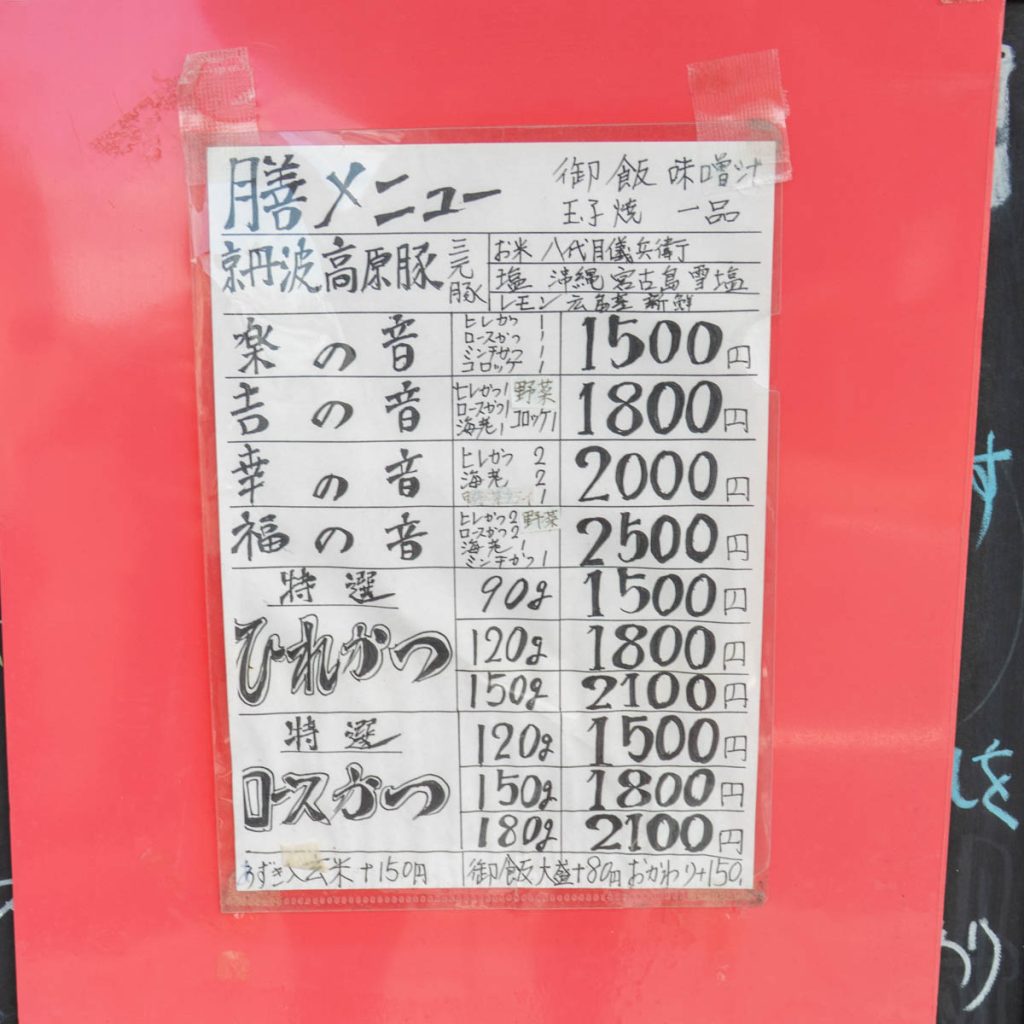 膳メニュー
御飯 味噌汁
玉子焼 一品
京丹波高原豚 三元豚
お米 八代目儀兵衛
塩 沖縄 宮古島 雪塩
レモン 広島産 新鮮
楽の音
ヒレかつ 1
ロースかつ 1
ミンチかつ 1
コロッケ 1
1500円
吉の音
ヒレかつ1 野菜
ロースかつ1 コロッケ1
海老1
1800円
幸の音
ヒレかつ 2
海老 2
1
2000円
福の音
ヒレかつ2 野菜
ロースかつ2
海老 1
ミンチかつ 1
2500円
特選
ひれかつ
90g 1500円
120g 1800円
150g 2100円
特選
ロースかつ
120g 1500円
150g 1800円
180g 2100円
あずき入玄米+150円
御飯大盛+80円 おかわり+150.
す
き
り